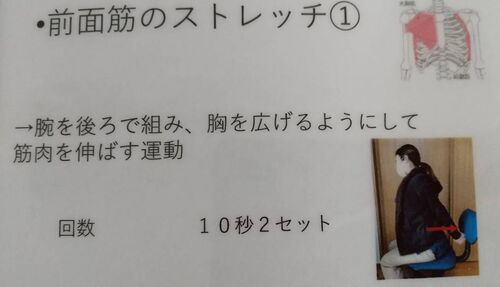 •前面筋のストレッチ①
→腕を後ろで組み、胸を広げるようにして
筋肉を伸ばす運動
回数 １０秒２セット